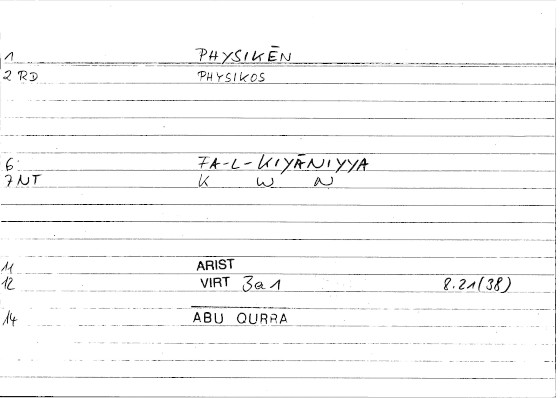 1 PHYSIKĒN
2 RD PHYSIKOS
6 FA-L-KIYĀNIYYA
7 NT K W N
11 ARIST
12 VIRT 3a1 8.21(38)
14 ABU QURRA